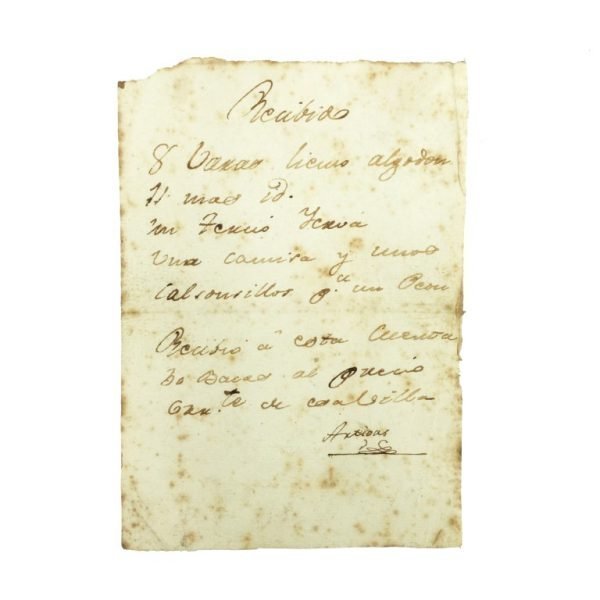 Recibido
8 Varas liens algodon
11 mas id.
un Tercio Yerva
Una camisa y unos
Calsonsillos p.ª un Peon
Recibio a esta Cuenta
30 Bacas al precio
Corr.te de esa Villa
Artigas